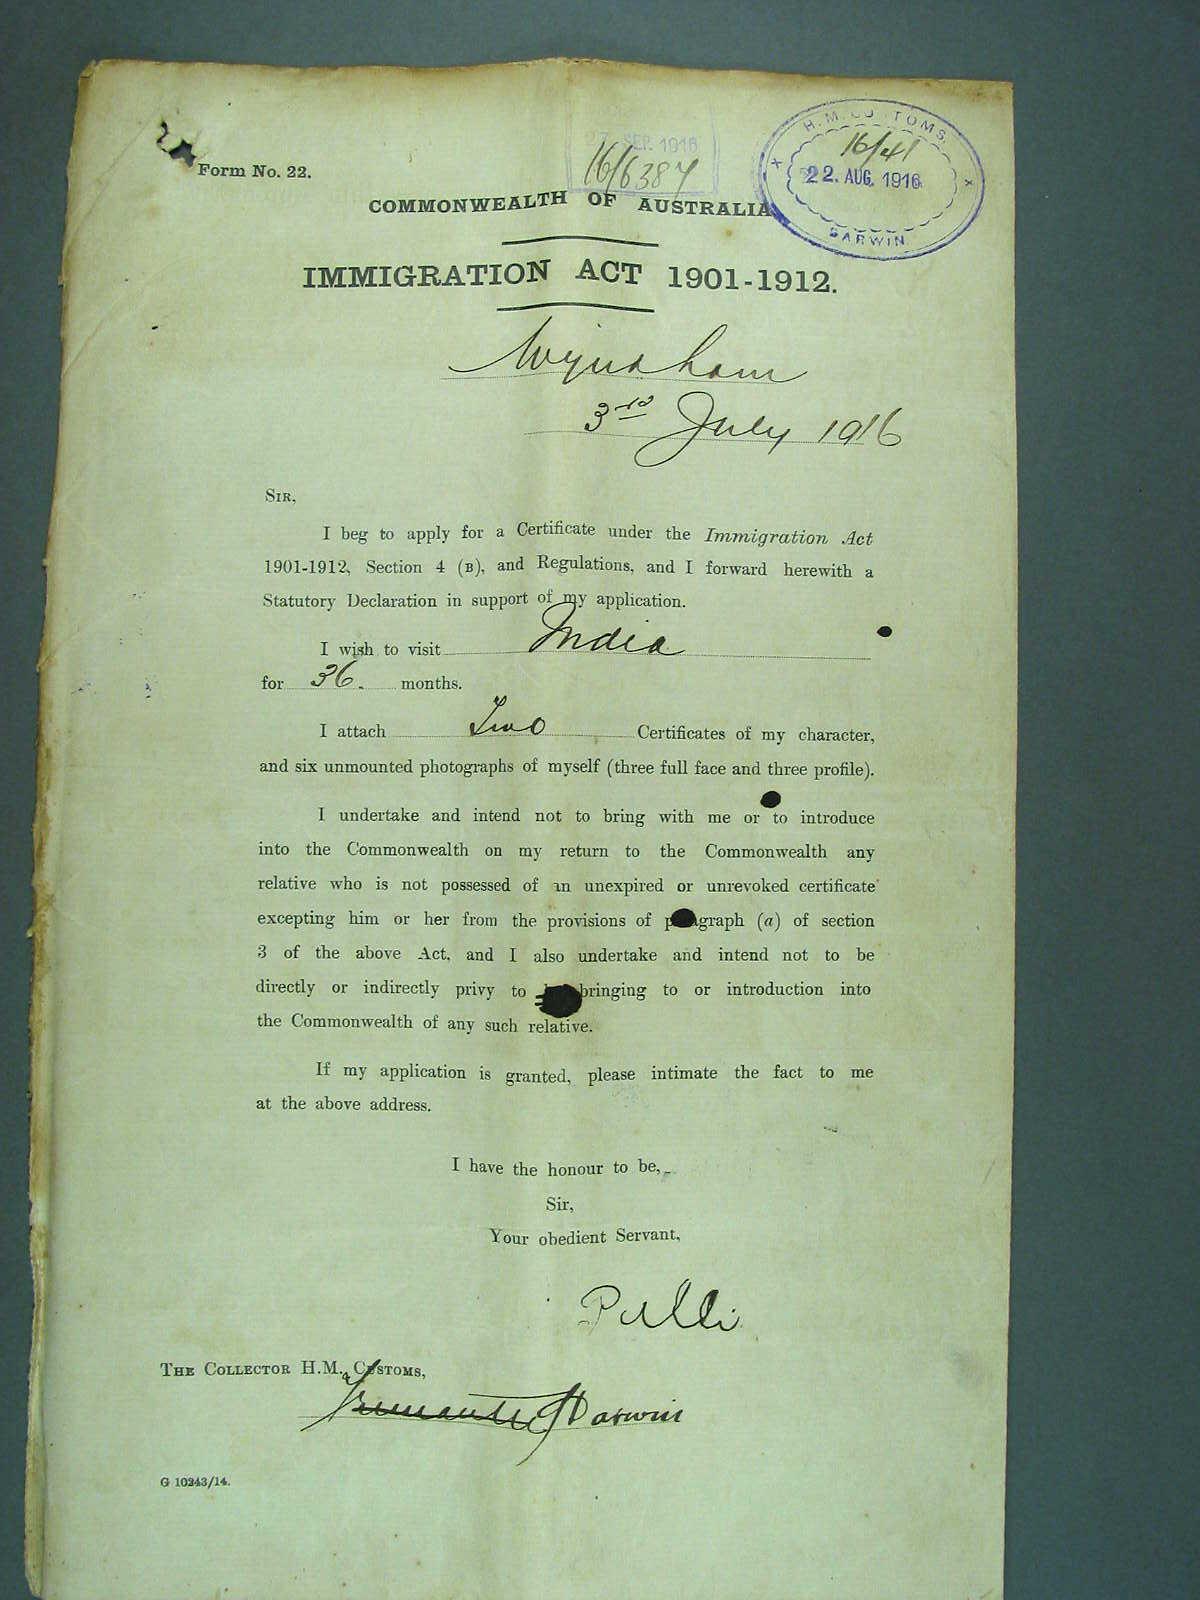 Form No. 22.
SEP. 1916
16/6387
H.M. CUSTOMS.
16/41
22. AUG. 1916
DARWIN
COMMONWEALTH OF AUSTRALIA
IMMIGRATION ACT 1901-1912.
Wyndham
3rd July 1916
SIR,
I beg to apply for a Certificate under the Immigration Act
1901-1912, Section 4 (B), and Regulations, and I forward herewith a
Statutory Declaration in support of my application.
I wish to visit India
for 36. months.
I attach Two Certificates of my character,
and six unmounted photographs of myself (three full face and three profile).
I undertake and intend not to bring with me or to introduce
into the Commonwealth on my return to the Commonwealth any
relative who is not possessed of an unexpired or unrevoked certificate
excepting him or her from the provisions of paragraph (a) of section
3 of the above Act, and I also undertake and intend not to be
directly or indirectly privy to bringing to or introduction into
the Commonwealth of any such relative.
If my application is granted, please intimate the fact to me
at the above address.
I have the honour to be,
Sir,
Your obedient Servant,
Pulli
THE COLLECTOR H.M. CUSTOMS,
Fremantle Darwin
G 10243/14.